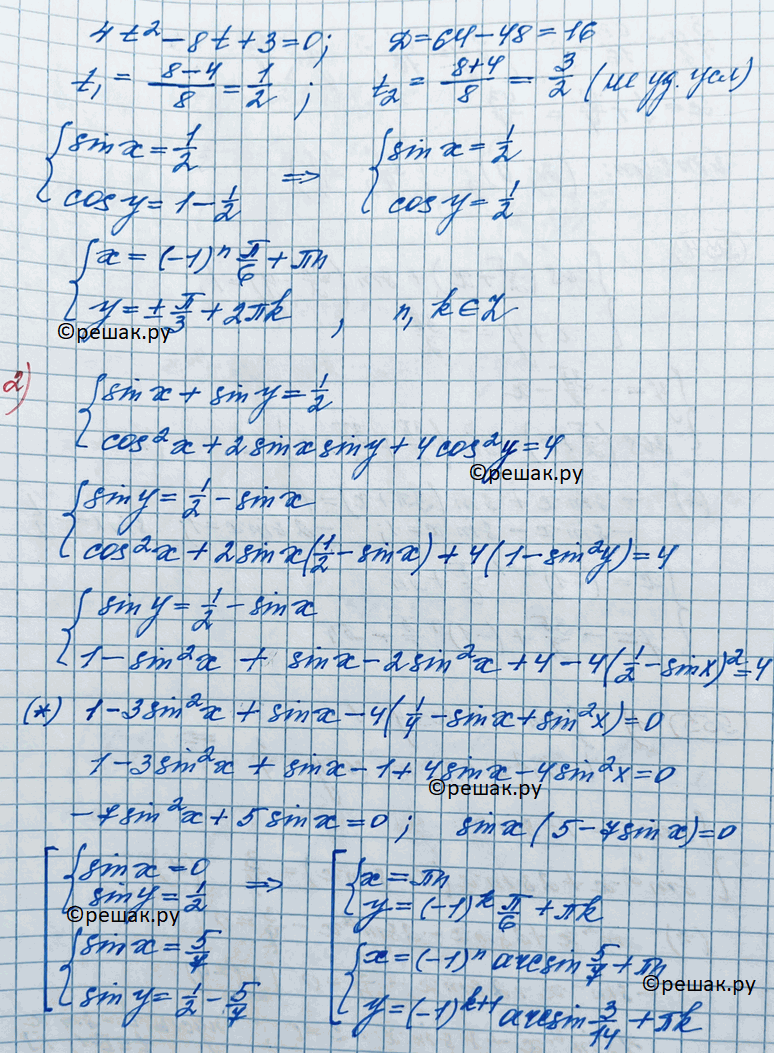 4t² - 8t + 3 = 0; D = 64 - 48 = 16
t₁ = (8-4)/8 = 1/2; t₂ = (8+4)/8 = 3/2 (не уд. усл)
{ sin x = 1/2 ⇒ { sin x = 1/2
cos y = 1 - 1/2 cos y = 1/2
{ x = (-1)ⁿ π/6 + πn
y = ± π/3 + 2πk, n, k ∈ Z
©решак.ру
2) { sin x + sin y = 1/2
cos² x + 2 sin x sin y + 4 cos² y = 4
©решак.ру
{ sin y = 1/2 - sin x
cos² x + 2 sin x (1/2 - sin x) + 4 (1 - sin² y) = 4
{ sin y = 1/2 - sin x
1 - sin² x + sin x - 2 sin² x + 4 - 4 (1/2 - sin x)² = 4
(*) 1 - 3 sin² x + sin x - 4 (1/4 - sin x + sin² x) = 0
1 - 3 sin² x + sin x - 1 + 4 sin x - 4 sin² x = 0
©решак.ру
-7 sin² x + 5 sin x = 0; sin x (5 - 7 sin x) = 0
[ { sin x = 0 ⇒ [ { x = πn
sin y = 1/2 y = (-1)ᵏ π/6 + πk
©решак.ру
{ sin x = 5/7 { x = (-1)ⁿ arcsin 5/7 + πn
©решак.ру
sin y = 1/2 - 5/7 y = (-1)ᵏ⁺¹ arcsin 3/14 + πk